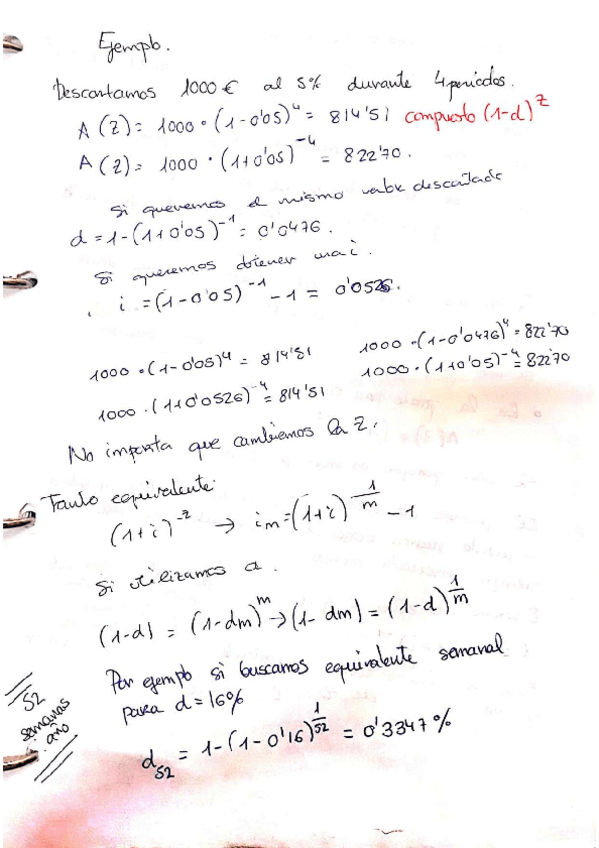 Ejemplo.
Descontamos 1000 € al 5% durante 4 periodos.
A(z) = 1000 · (1-0'05)^4 = 814'51 compuesto (1-d)^z
A(z) = 1000 · (1+0'05)^-4 = 822'70.
Si queremos el mismo valor descontado
d = 1-(1+0'05)^-1 = 0'0476.
Si queremos obtener una i.
i = (1-0'05)^-1 - 1 = 0'0526.
1000 · (1-0'05)^4 = 814'51
1000 · (1+0'0526)^-4 = 814'51
1000 · (1-0'0476)^4 = 822'70
1000 · (1+0'05)^-4 = 822'70
No importa que cambiemos la z.
Tanto equivalente.
(1+i)^-z → im = (1+i)^1/m - 1
Si utilizamos d.
(1-d) = (1-dm)^m → (1-dm) = (1-d)^1/m
Por ejemplo si buscamos equivalente semanal
para d=16%
52
semanas
año
d52 = 1-(1-0'16)^1/52 = 0'3347%